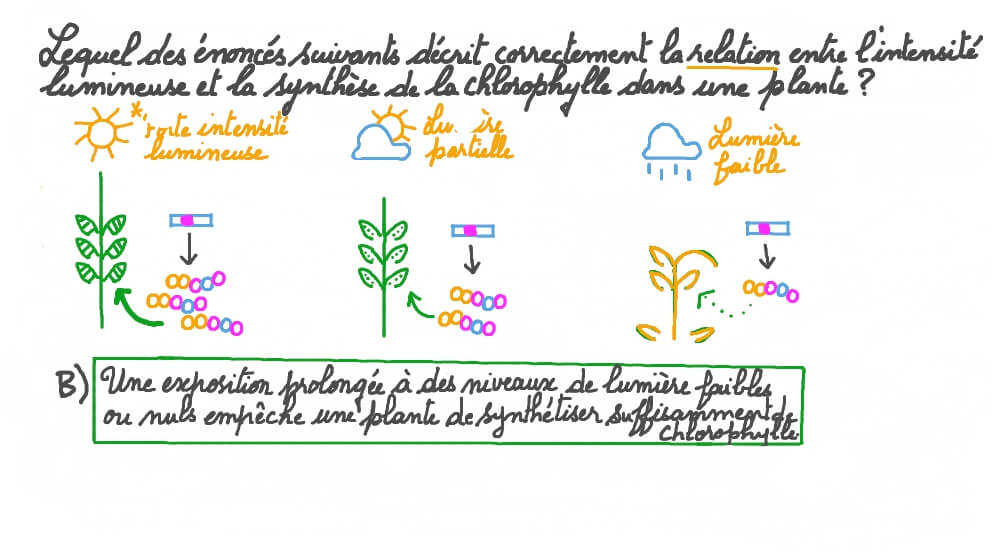 Lequel des énoncés suivants décrit correctement la relation entre l'intensité
lumineuse et la synthèse de la chlorophylle dans une plante ?
* Forte intensité
lumineuse
partielle
Lumière
faible
B) Une exposition prolongée à des niveaux de lumière faibles
ou nuls empêche une plante de synthétiser suffisamment de
chlorophylle